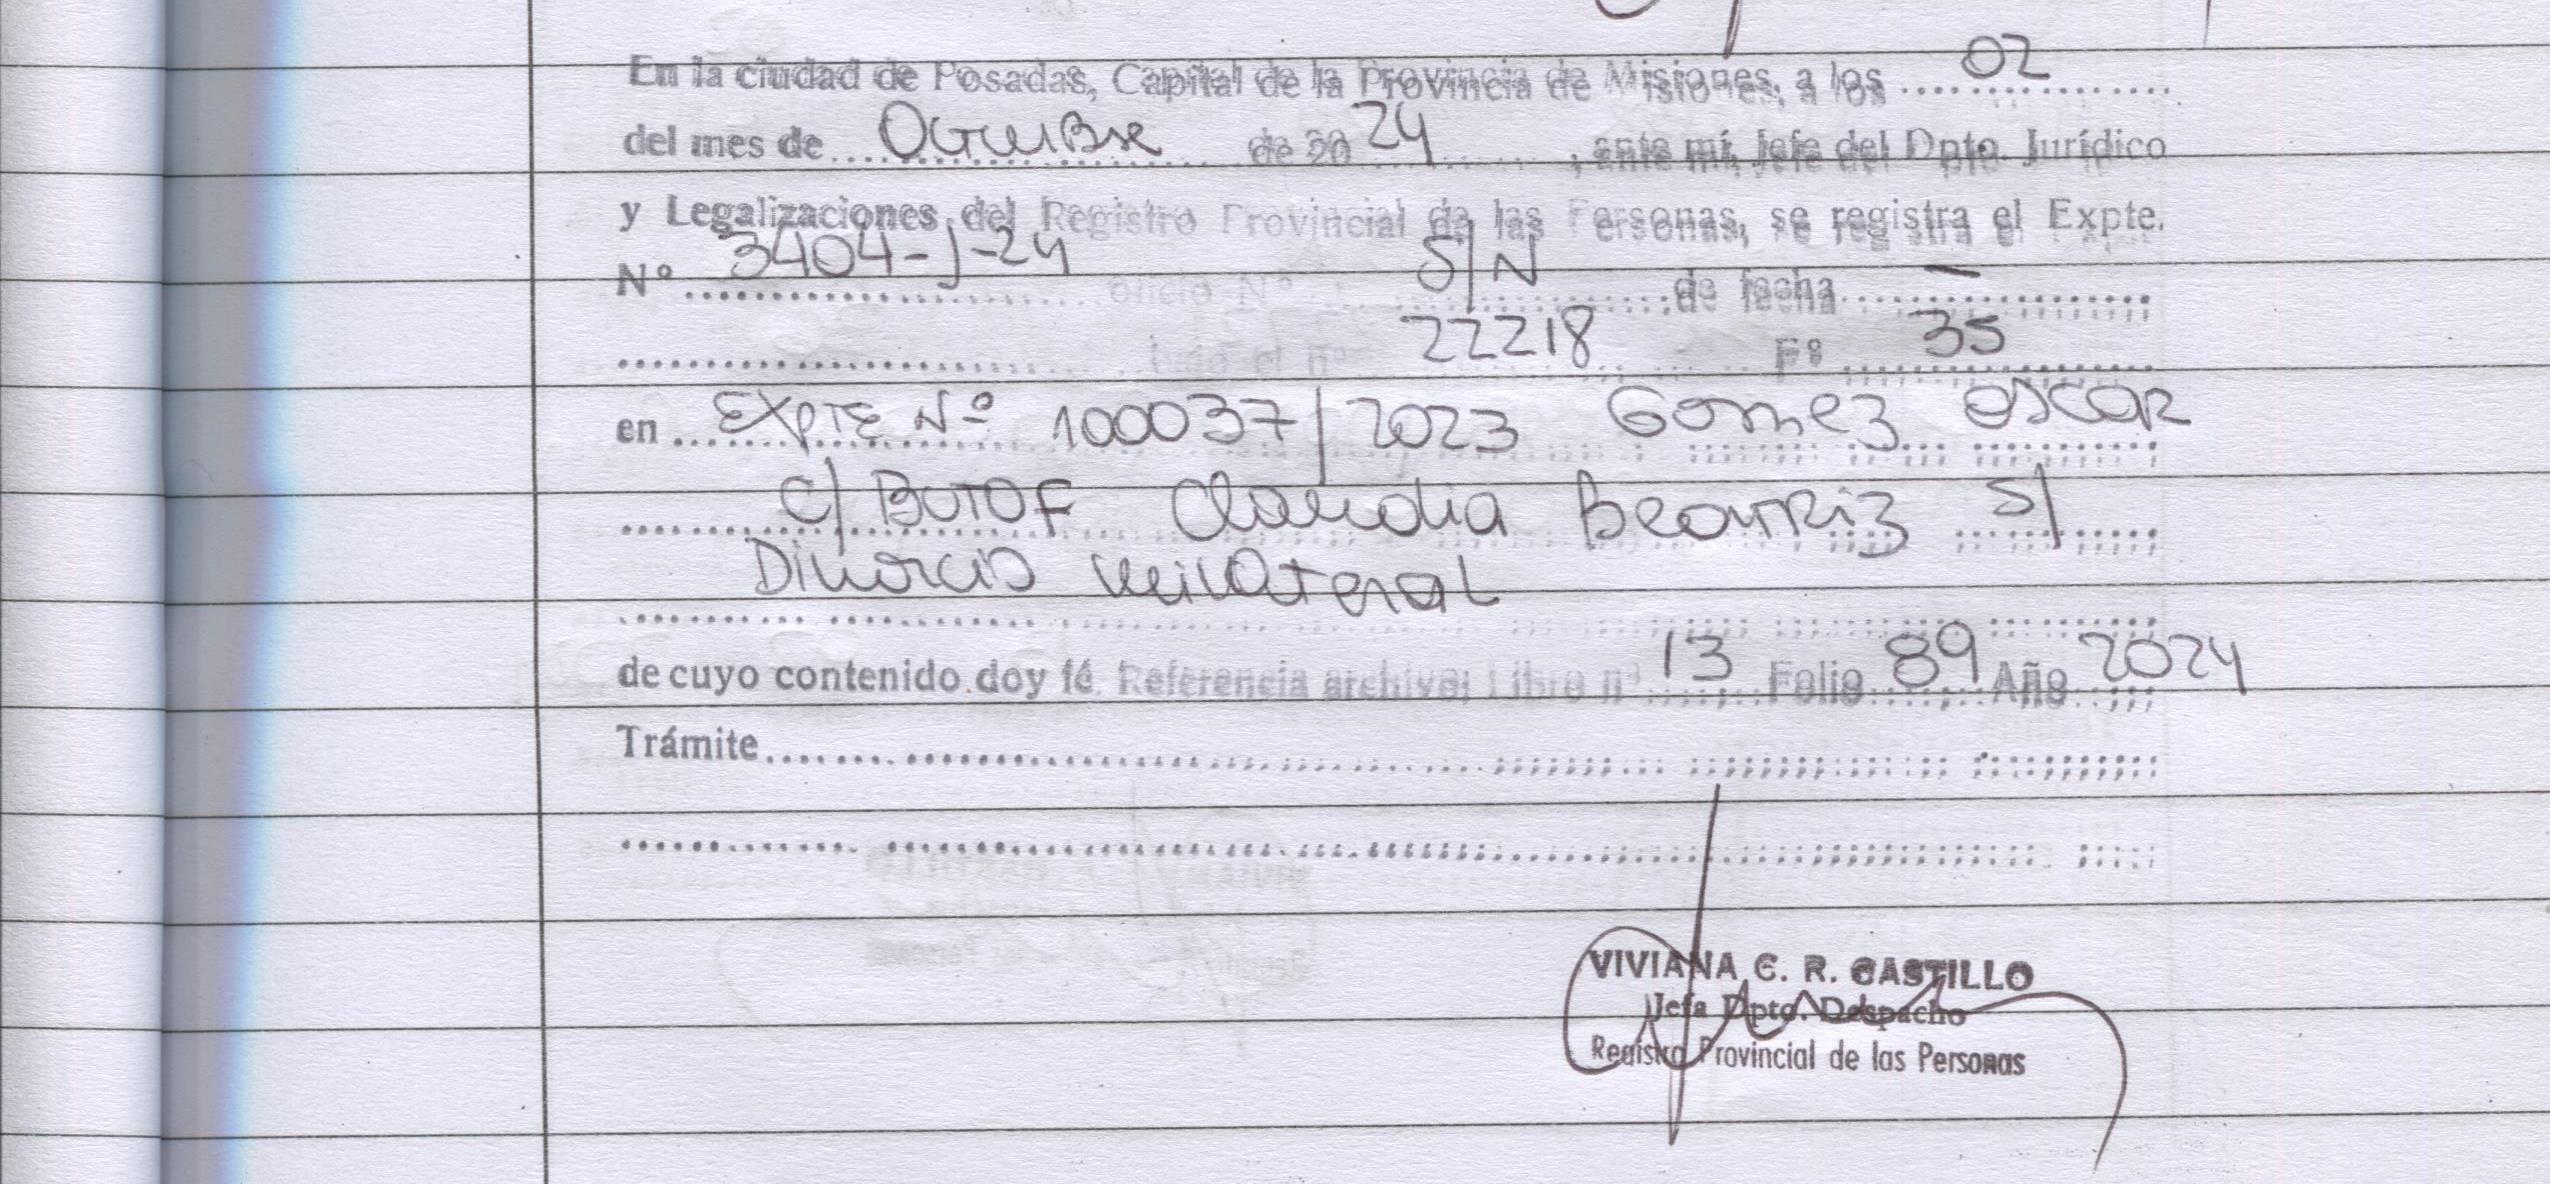 En la ciudad de Posadas, Capital de la Provincia de Misiones, a los 02
del mes de Octubre de 2024, ante mí, Jefe del Dpto. Jurídico
y Legalizaciones del Registro Provincial de las Personas, se registra el Expte.
Nº 3404-J-24 oficio Nº S/N de fecha —
22218 Fº 35
en EXPTE Nº 100037/2023 Gomez Oscar
C/ BUTOF Claudia Beatriz S/
Divorcio unilateral
de cuyo contenido doy fé. Referencia archivo: Libro nº 13 Folio 89 Año 2024
Trámite
VIVIANA C. R. CASTILLO
Jefa Dpto. Despacho
Registro Provincial de las Personas